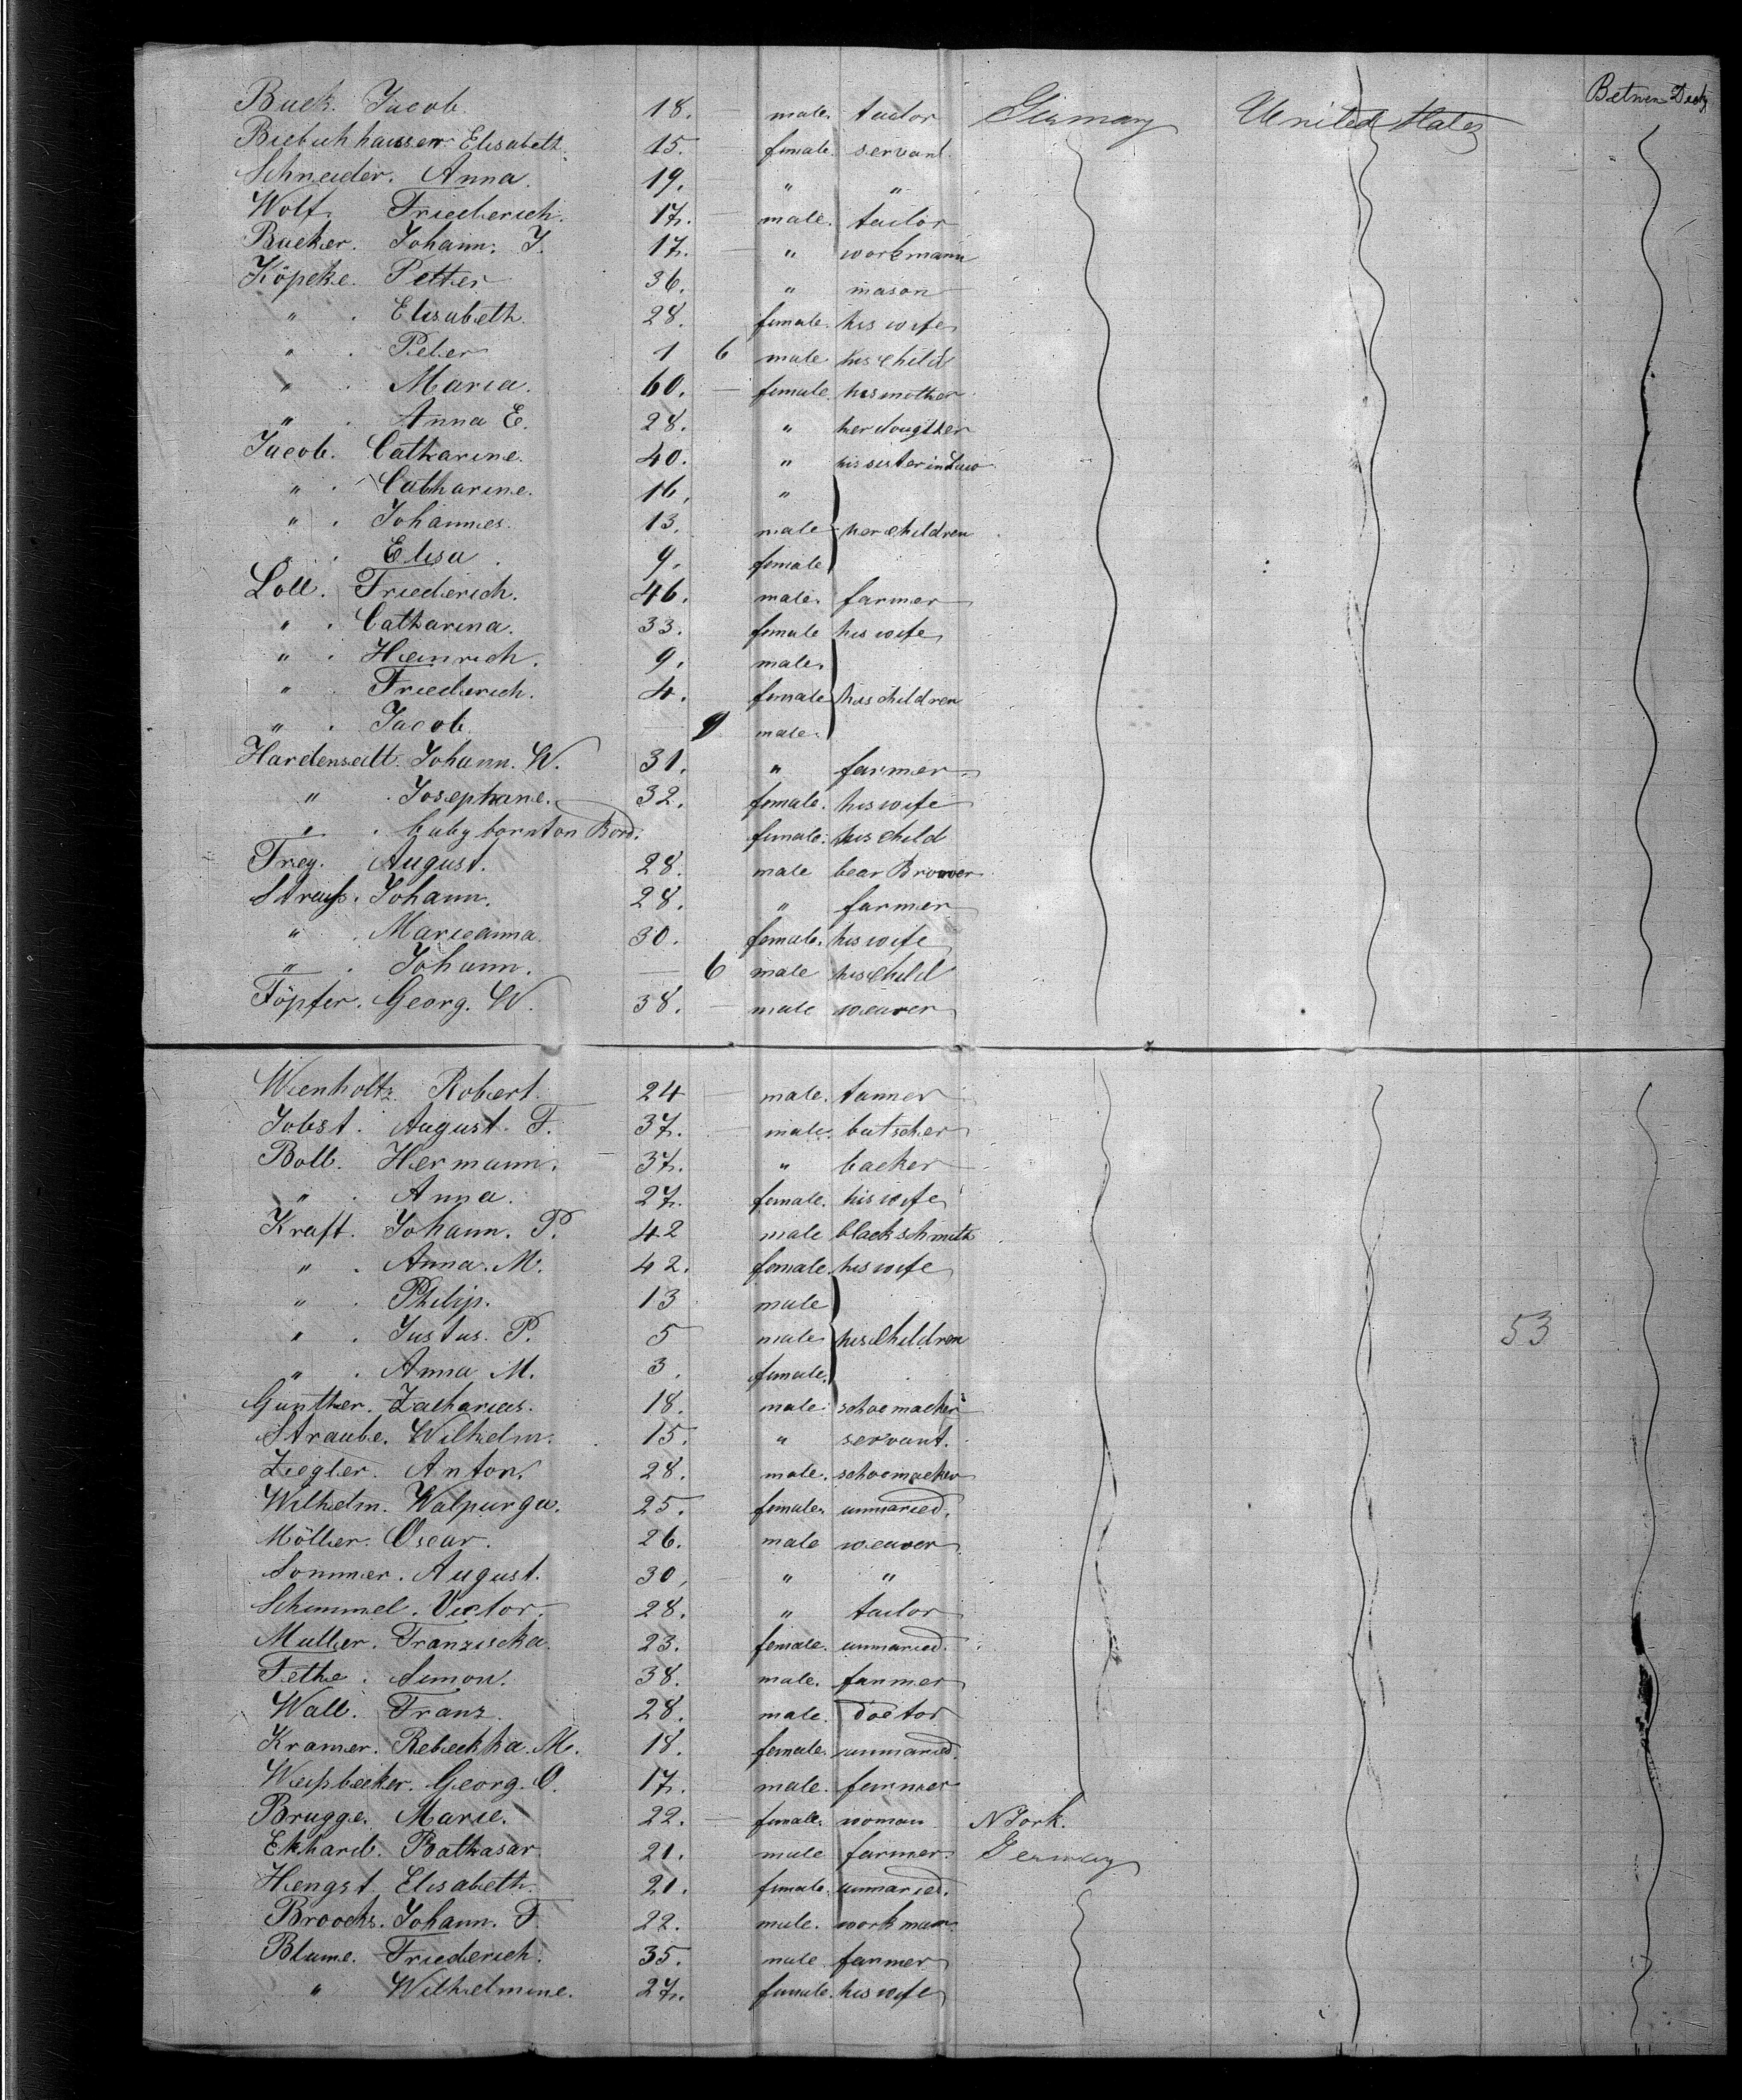 Buck. Jacob. 18. — male. tailor Germany United States Betwen Decks
Biebuhhausen Elisabeth. 15. female. servant.
Schneider. Anna. 19. " "
Wolf. Friederich. 17. — male. tailor
Bucker. Johann. J. 17. — " workmann
Köpcke. Petter 36. " mason
" . Elisabeth. 28. female. his wife
" . Peter 1 6 male his child
" . Maria. 60. — female. his mother
" . Anna E. 28. " her dougther
Jacob. Catharine. 40. " his sister in Law
" . Catharine. 16. "
" . Johannes. 13. male her children
" . Elisa. 9. female
Loll. Friederich. 46. male. farmer
" . Catharina. 33. female his wife
" . Heinrich. 9. male.
" . Friederich. 4. female his children
" . Jacob. — 9 male.
Hardensett. Johann. W. 31. " farmer.
" . Josephane. 32. female. his wife
" . baby born on Bord. female. his child
Frey. August. 28. male bear Brower
Strauß. Johann. 28. " farmer
" . Marieanna. 30. female. his wife
" . Johann. — 6 male his child
Töpfer. Georg. W. 38. — male weaver
Wienholtz. Robert. 24 — male. tanner
Jobst. August. F. 37. — male. butscher
Boll. Hermann. 37. " backer
" . Anna. 27. female. his wife
Kraft. Johann. P. 42 male blackschmith
" . Anna. M. 42. female. his wife
" . Philip. 13 male
" . Justus. P. 5 male his Children 53
" . Anna M. 3. female.
Gunther. Zacharias. 18. male schoemacker
Straube. Wilhelm. 15. " servant.
Ziegler. Anton. 28. male. schoemacker
Wilhelm. Walpurga. 25. female. unmaried.
Möller. Oscar. 26. male weaver
Sommer. August. 30. " "
Schimmel. Victor. 28. " tailor
Muller. Franziscka. 23. female. unmaried.
Fethe. Simon. 38. male. farmer
Wall. Franz. 28. male. Doctor
Kramer. Rebeckka. M. 18. female. unmaried.
Weißbecker. Georg. O. 17. male. farmer
Brugge. Marie. 22. — female. woman NYork.
Ekhard. Balthasar 21. male farmer Germany
Hengst. Elisabeth. 21. female. unmaried.
Broocks. Johann. F. 22. male. workman.
Blume. Friederich. 35. male farmer
" Wilhelmine. 27. female. his wife